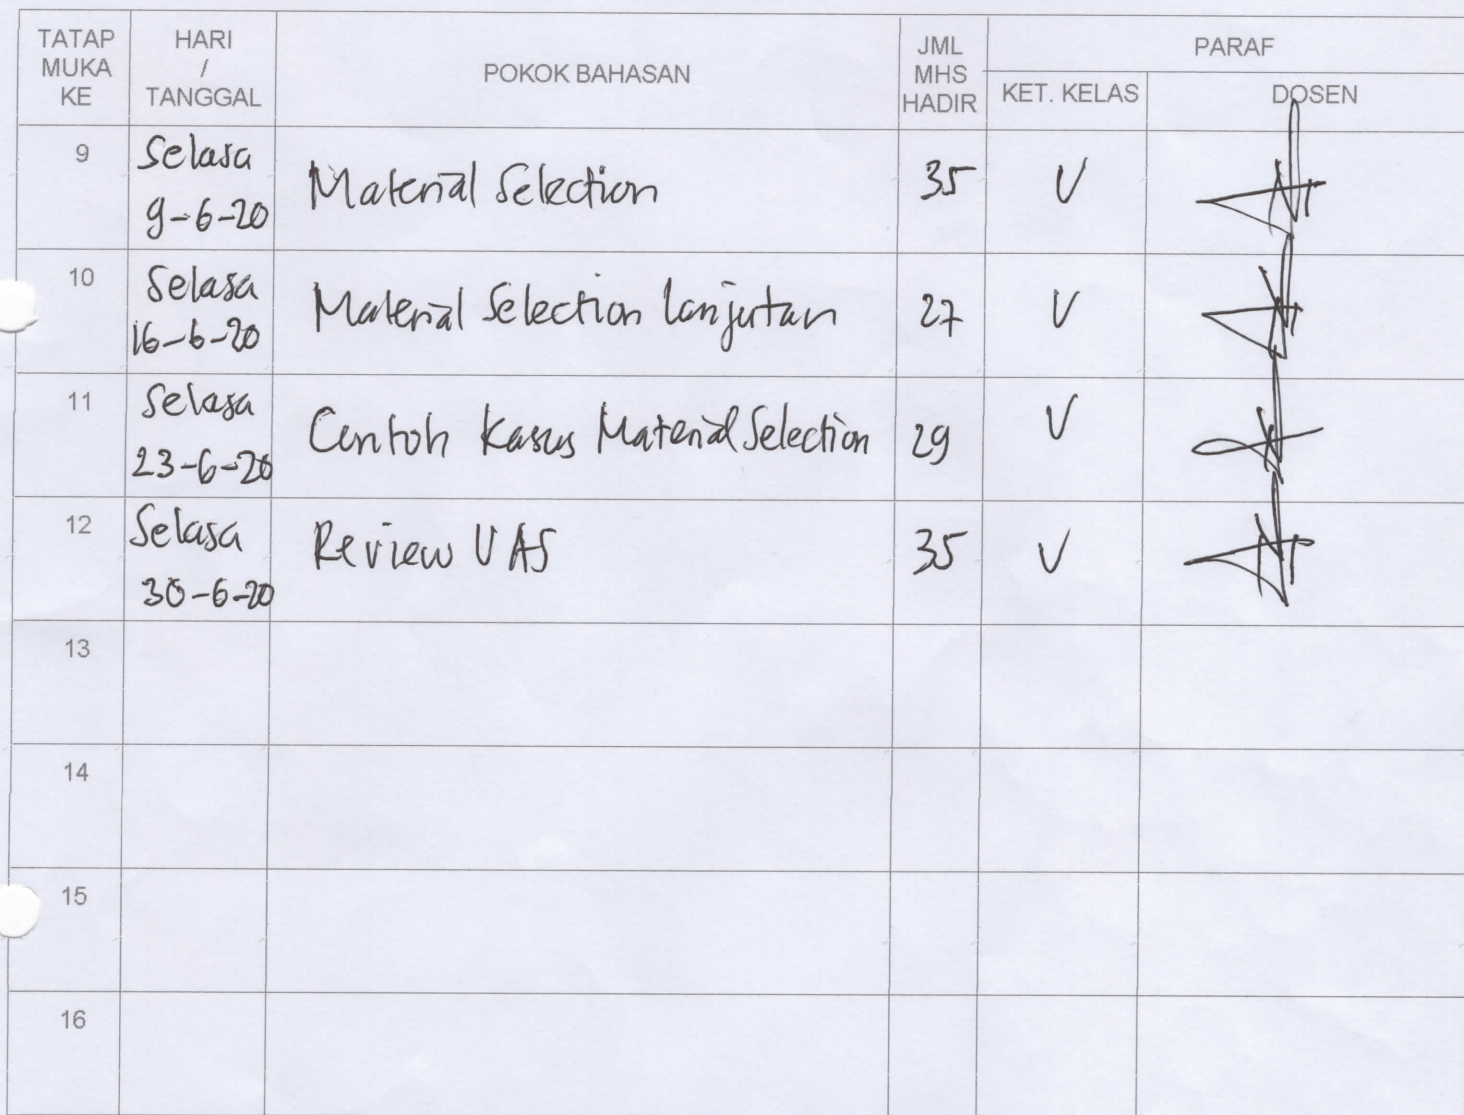 TATAP MUKA KE
HARI / TANGGAL
POKOK BAHASAN
JML MHS HADIR
PARAF
KET. KELAS
DOSEN
9
Selasa
9-6-20
Material Selection
35
V
10
Selasa
16-6-20
Material Selection lanjutan
27
V
11
Selasa
23-6-20
Contoh Kasus Material Selection
29
V
12
Selasa
30-6-20
Review UAS
35
V
13
14
15
16